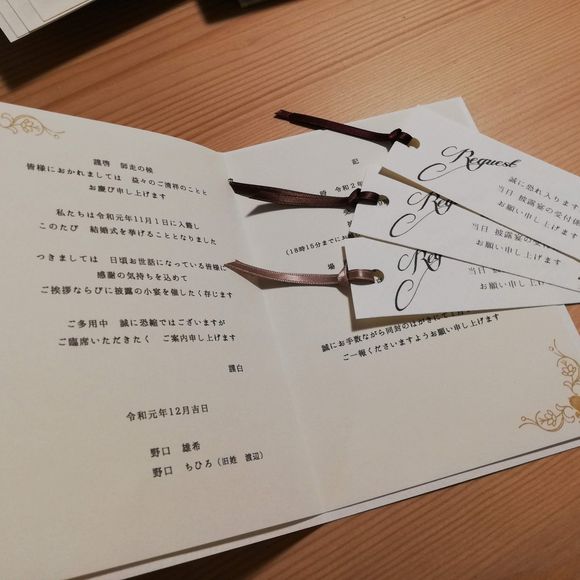 謹啓　師走の候
皆様におかれましては　益々のご清祥のことと
お慶び申し上げます
私たちは令和元年11月1日に入籍し
このたび　結婚式を挙げることとなりました
つきましては　日頃お世話になっている皆様に
感謝の気持ちを込めて
ご挨拶ならびに披露の小宴を催したく存じます
ご多用中　誠に恐縮ではございますが
ご臨席いただきたく　ご案内申し上げます
謹白
令和元年12月吉日
野口　雄希
野口　ちひろ（旧姓　渡辺）
記
令和2年
（18時15分までにお
場
誠にお手数ながら同封のはがきにて
ご一報くださいますようお願い申し上げます
Request
誠に恐れ入ります
当日 披露宴の受付係
お願い申し上げ
Req
当日 披露宴の受
お願い申し上げ
Req
誠に恐
当日 披露
お願い申し上